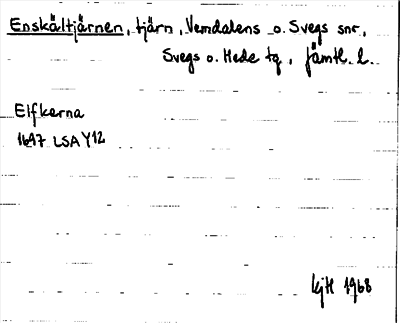 Enskältjärnen, tjärn, Vemdalens o. Svegs snr,
Svegs o. Hede tg, Jämtl. l.
Elfkerna
1647 LSA Y12
kjH 1968